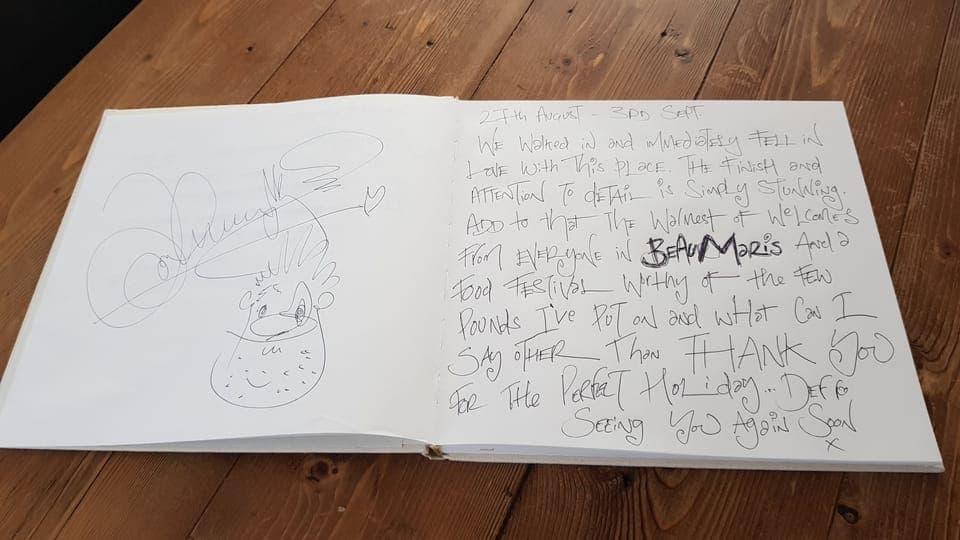 27th August - 3RD SEPT.
WE WALKED IN and iMMEDiATELY FELL iN
LOVE WiTH THiS PLACE. THE FiNiSH and
ATTENTiON TO dETAiL iS SiMPLY STUNNiNG.
ADD to that THE WARMEST OF WELCOMES
FROM EVERYONE iN BEAUMARiS And a
FOOd FESTiVAL WORTHY OF the FEW
POUNDS I'VE PUT ON and WHat CAN I
SAY OTHER THan THANK YOU
FOR THE PERFECT HOLiday... DEFFO
SEEiNG YOU AGAiN SOON
X